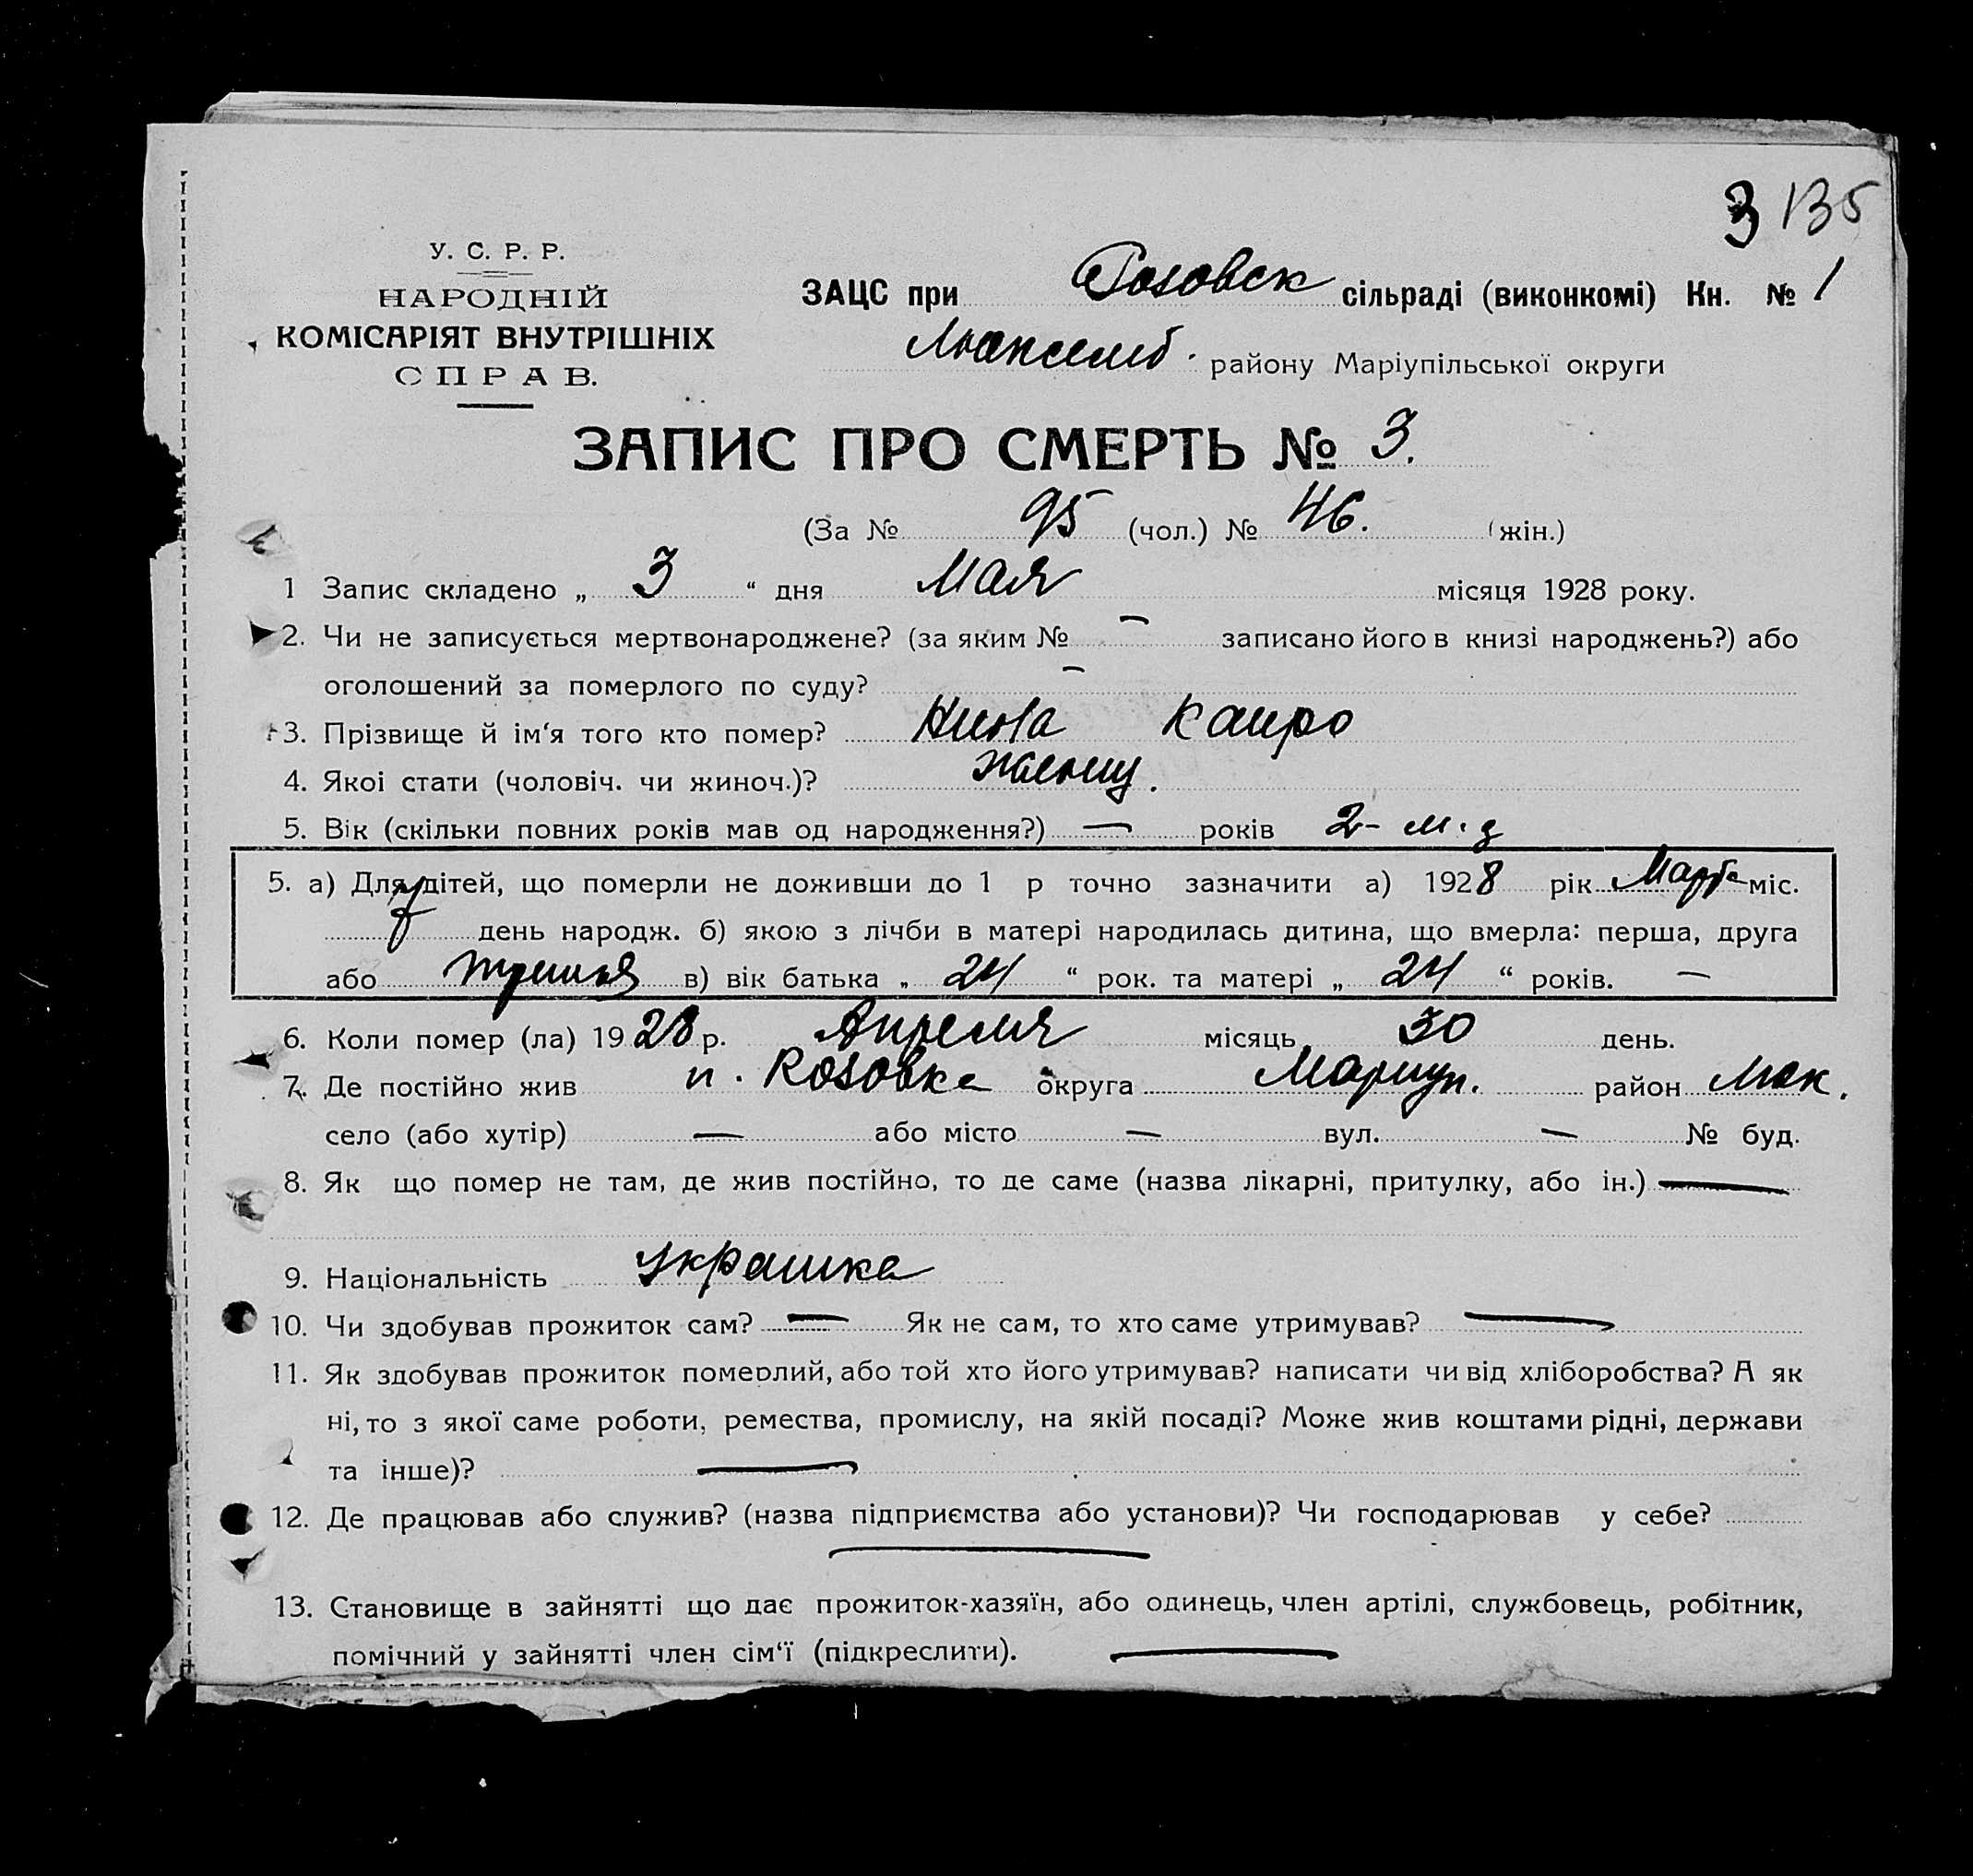 3 135
У. С. Р. Р.
НАРОДНІЙ
КОМІСАРІЯТ ВНУТРІШНІХ
СПРАВ.
ЗАЦС при Розовск сільраді (виконкомі) Кн. № 1
Люксемб. району Маріупільської округи
ЗАПИС ПРО СМЕРТЬ № 3.
(За № 95 (чол.) № 46. (жін.)
1 Запис складено „ 3 “ дня Мая місяця 1928 року.
2. Чи не записується мертвонароджене? (за яким № — записано його в книзі народжень?) або
оголошений за померлого по суду? —
3. Прізвище й ім‘я того кто помер? Каиро
4. Якоі стати (чоловіч. чи жиноч.)? женщ.
5. Вік (скільки повних років мав од народження?) — років 2- м.
5. а) Для дітей, що померли не доживши до 1 р точно зазначити а) 1928 рік Марта міс.
7 день народж. б) якою з лічби в матері народилась дитина, що вмерла: перша, друга
або третья в) вік батька „ 24 “ рок. та матері „ 24 “ років. —
6. Коли помер (ла) 1928 р. Апреля місяць 30 день.
7. Де постійно жив п. Розовка округа Мариуп. район Люк.
село (або хутір) — або місто — вул. — № буд.
8. Як що помер не там, де жив постійно, то де саме (назва лікарні, притулку, або ін.) —
9. Національність украинка
10. Чи здобував прожиток сам? — Як не сам, то хто саме утримував? —
11. Як здобував прожиток померлий, або той хто його утримував? написати чи від хліборобства? А як
ні, то з якої саме роботи, ремества, промислу, на якій посаді? Може жив коштами рідні, держави
та інше)? —
12. Де працював або служив? (назва підприємства або установи)? Чи господарював у себе?
—
13. Становище в зайнятті що дає прожиток-хазяїн, або одинець, член артілі, службовець, робітник,
помічний у зайнятті член сім‘ї (підкреслити). —